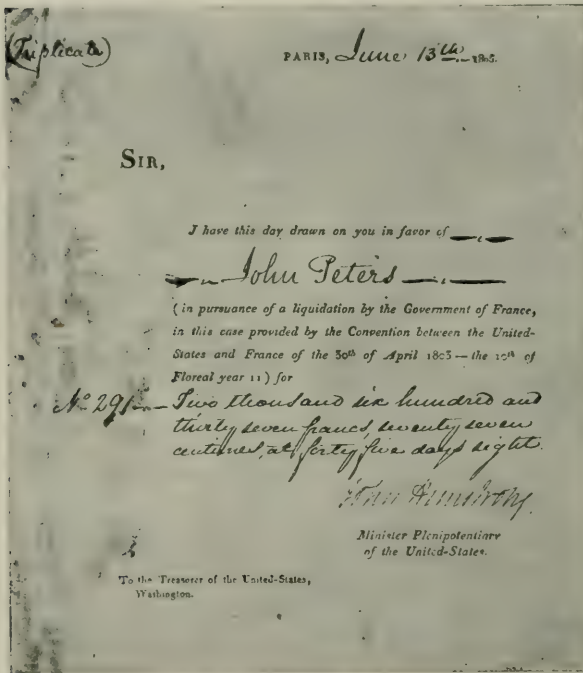 (Triplicate)
PARIS, June 13th 1805.
SIR,
I have this day drawn on you in favor of
John Peters
(in pursuance of a liquidation by the Government of France,
in this case provided by the Convention between the United-
States and France of the 30th of April 1803 — the 10th of
Floreal year 11) for
No 291 — Two thousand six hundred and
thirty seven francs, seventy seven
centimes, at forty five days sight.
John Armstrong
Minister Plenipotentiary
of the United-States.
To the Treasurer of the United-States,
Washington.